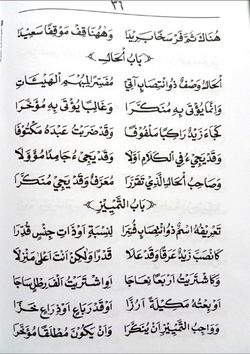 ٣٦
هُنَاكَ ثَمَّ فَرْسَخًا بَرِيْدَا وَهٰهُنَا قِفْ مَوْقِفًا سَعِيْدَا
﴿ بَابُ الْحَالِ ﴾
اَلْحَالُ وَصْفٌ ذُو انْتِصَابٍ آتِيْ مُفَسِّرًا لِمُبْهَمِ الْهَيْئَاتِ
وَإِنَّمَا يُؤْتَى بِهِ مُنَكَّرَا وَغَالِبًا يُؤْتَى بِهِ مُؤَخَّرَا
كَجَاءَ زَيْدٌ رَاكِبًا مَلْفُوْفَا وَقَدْ ضَرَبْتُ عَبْدَهُ مَكْتُوْفَا
وَقَدْ يَجِيْءُ فِي الْكَلَامِ أَوَّلَا وَقَدْ يَجِيْءُ جَامِدًا مُؤَوَّلَا
وَصَاحِبُ الْحَالِ الَّذِيْ تَقَرَّرَا مُعَرَّفٌ وَقَدْ يَجِيْ مُنَكَّرَا
﴿ بَابُ التَّمْيِيْزِ ﴾
تَعْرِيْفُهُ اسْمٌ ذُو انْتِصَابٍ فَسَّرَا لِنِسْبَةٍ أَوْ ذَاتِ جِنْسٍ قَدَّرَا
كَانْصَبَّ زَيْدٌ عَرَقًا وَقَدْ عَلَا قَدْرًا وَلٰكِنْ أَنْتَ أَعْلَى مَنْزِلَا
وَكَاشْتَرَيْتُ أَرْبَعًا نِعَاجَا أَوِ اشْتَرَيْتُ أَلْفَ رِطْلٍ سَاجَا
أَوْ بِعْتُهُ مَكِيْلَةً أَرُزَّا أَوْ قَدْرَ بَاعٍ أَوْ ذِرَاعٍ خَزَّا
وَوَاجِبُ التَّمْيِيْزِ أَنْ يُنَكَّرَا وَأَنْ يَكُوْنَ مُطْلَقًا مُؤَخَّرَا